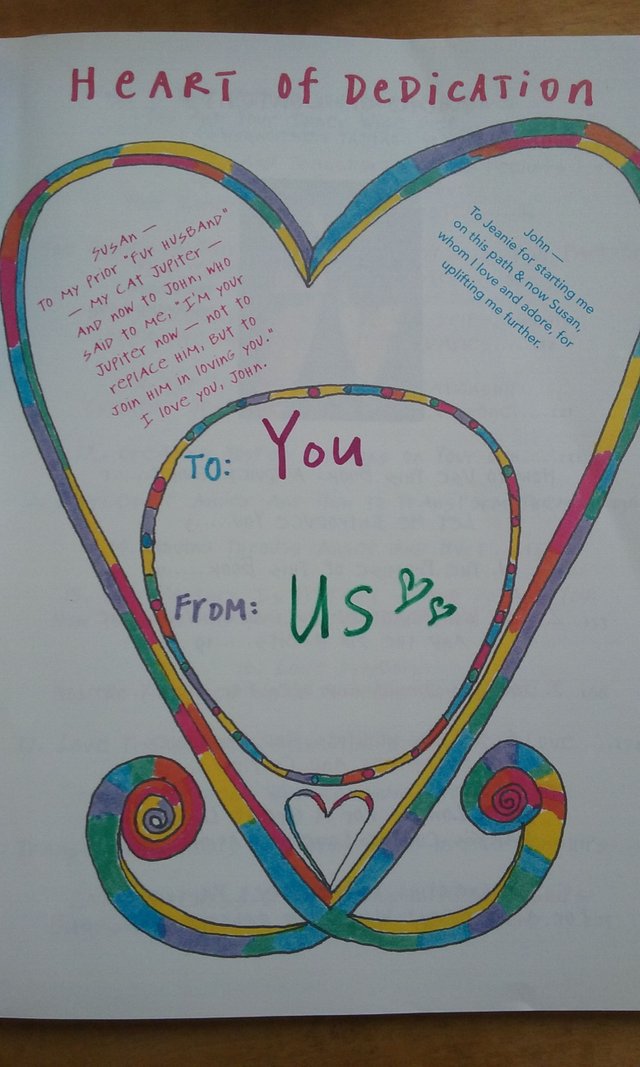 HeART of DeDicATion
SuSAn —
To my prior "fur HuSBAnD"
— my CAT Jupiter —
AnD now to John, wHo
SAiD to me, "I'm your
Jupiter now — noT To
replace Him, BuT To
join Him in loving you."
I love you, John.
John —
To Jeanie for starting me
on this path & now Susan,
whom I love and adore, for
uplifting me further.
TO: You
FROM: US